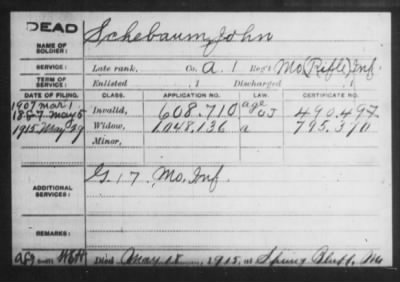 DEAD
NAME OF SOLDIER: Schebaum, John
SERVICE: Late rank, Co. A. 1 Reg't Mo (Rifle) Inf.
TERM OF SERVICE: Enlisted , 1 Discharged , 1
DATE OF FILING. CLASS. APPLICATION NO. LAW. CERTIFICATE NO.
1907 mar 1
1887 May 5 Invalid, 608.710 age 490.497
1915 May 29 Widow, 1048.136 a 795.370
Minor,
ADDITIONAL SERVICES: G. 17 Mo. Inf.
REMARKS:
Died May 18, 1915, at Spring Bluff, Mo